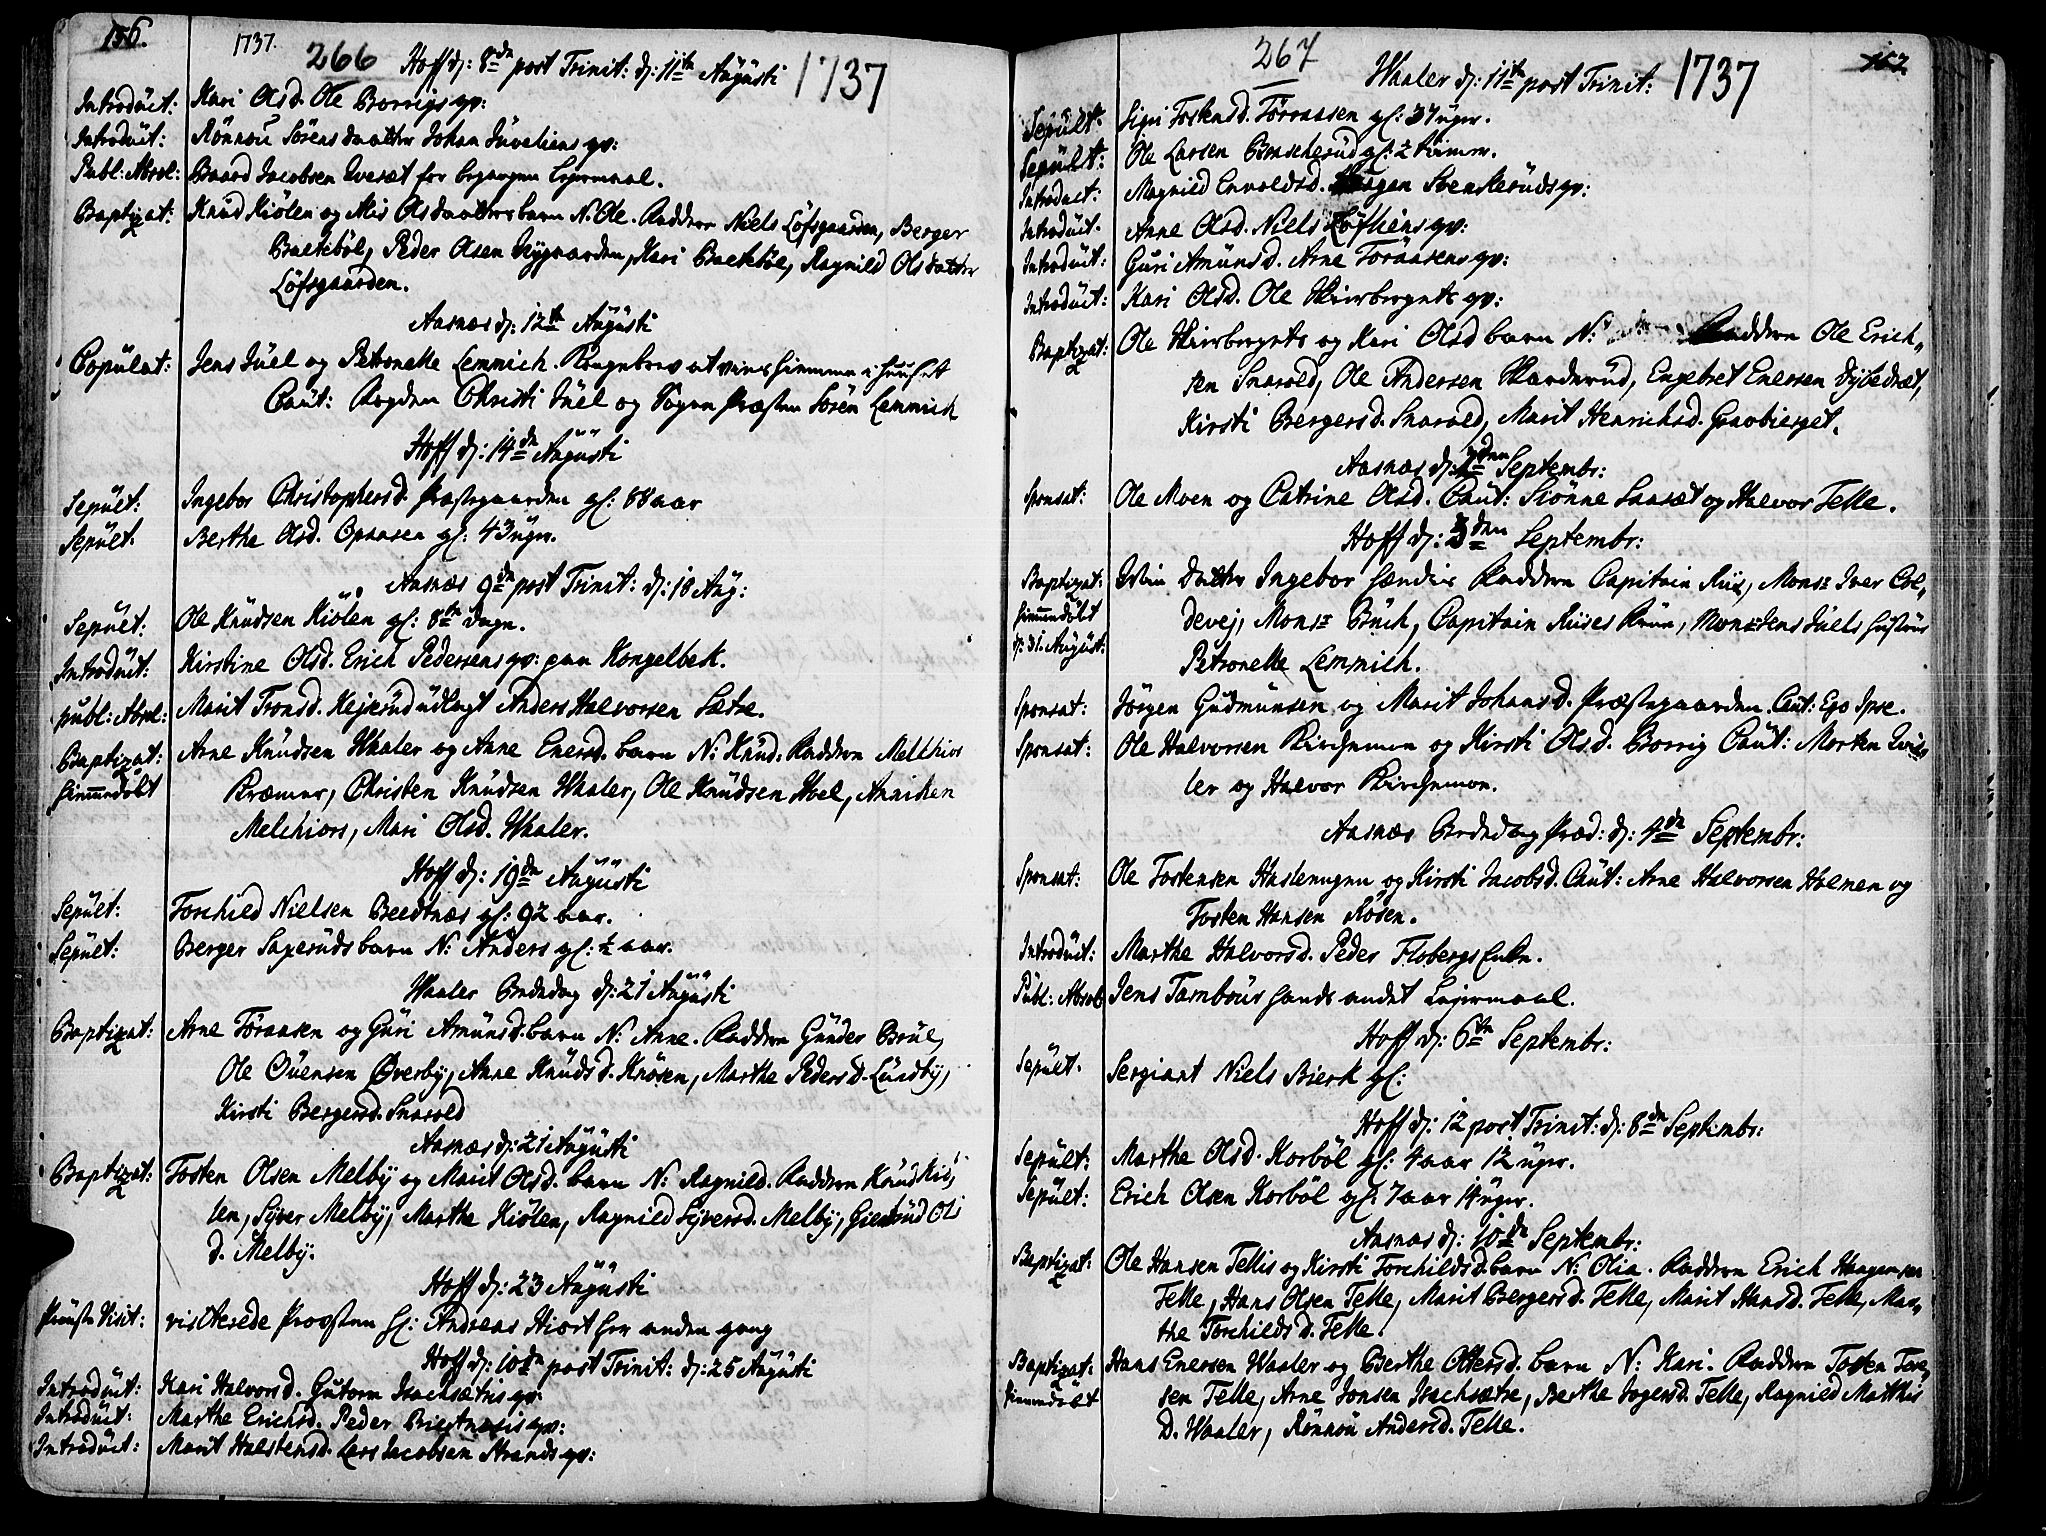 156.
1737.
266
Hoff d: 8de post Trinit: d: 11te Augusti
1737
Introduct: Kari Olsd. Ole Borrigs qv:
Introduct: Rönnou Sörens daatter Johan Juveliens qv:
Publ: Absol: Baard Jacobsen Qvesæt for begangen Lejermaal.
Baptizat: Knud Kiölen og Mis Olsdaatters barn N. Ole. Faddere Niels Löfsgaarden, Berger
Bruckeböl, Peder Olsen Nygaarden, Kari Bruckeböl, Ragnild Olsdaatter
Löfsgaarden.
Aasnæs d: 12te Augusti
Copulat: Jens Juel og Petronelle Lemmich. Kongebrev at vies hiemme i huuset
Caut: Fogden Christi Juel og Sogne Præsten Sören Lemmich
Hoff d: 14de Augusti
Sepult: Ingebor Christophersd. Præstegaarden gl: 88 aar
Sepult. Berthe Olsd. Opaasen gl: 43 uger.
Aasnæs 9de post Trinit: d: 18 Aug:
Sepult: Ole Knudsen Kiölen gl: 8te dage.
Introduct: Kirstine Olsd. Erich Pedersens qv: paa Kongelbek.
publ: Absol: Marit Tronsd. Kejserud udlagt Anders Halvorsen Sætre.
Baptizat: Arne Knudsen Waaler og Anne Enersd. barn N: Knud. Faddere Melchior
hiemmedöbt Kræmer, Christen Knudsen Waaler, Ole Knudsen Hoel, Anniken
Melchiors, Mari Olsd. Waaler.
Hoff d: 19de Augusti
Sepult: Torchild Nielsen Beedtnæs gl: 92 aar.
Sepult: Berger Saxeruds barn N: Anders gl: ½ aar.
Waaler Bededag d: 21 Augusti
Baptizat: Arne Töraasen og Guri Amunsd. barn N: Anne. Faddere Gunder Brul,
Ole Ouensen Överby, Anne Knudsd. Knosen, Marthe Pedersd. Lundby,
Kirsti Bergersd. Snarold
Aasnæs d: 21 Augusti
Baptizat: Tosten Olsen Melby og Marit Olsd. barn N: Ragnild. Faddere Knud Kiö,
len, Syver Melby, Marthe Kiölen, Ragnild Syversd. Melby, Giertrud Ols
d. Melby.
Hoff d: 23 Augusti
Prouste Visit: visiterede Provsten Hr: Andreas Hiort her anden gang
Hoff d: 10de post Trinit: d: 25 Augusti
Introduct: Kari Halvorsd. Gutorm Isachsætris qv:
Introduct: Marthe Erichsd. Peder Brestnæsis qv:
Introduct: Marit Halstensd. Lars Jacobsen Strands qv:
267
Waaler d: 11te post Trinit:
1737
157
Sepult: Sigri Tostensd. Törraasen gl: 37 uger.
Sepult: Ole Larsen Benscherud gl: 2 timer.
Introduct: Magnild Envoldsd. Haagen Svenkeruds qv:
Introduct. Anne Olsd. Niels Löfliens qv:
Introduct: Guri Amunsd. Arne Toraasens qv:
Introduct: Kari Olsd. Ole Skiærbergets qv:
Baptizat: Ole Skiærbergets og Kari Olsd barn N: Faddere Ole Erich,
sen Snarold, Ole Andersen Skarderud, Engebret Enersen Dybedræt,
Kirsti Bergersd. Snarold, Marit Henrichsd. Gravbierget.
Aasnæs d: den Septembr:
Sponsat: Ole Moen og Catrine Olsd. Caut: Siönne Saaset og Halvor Telle.
Hoff d: 3den Septembr:
Baptizat: Min datter Ingebor Faddere Capitain Riis, Monsr Iver Col,
hiemmedöbt devej, Monsr Buch, Capitain Riises Frue, Monsr Jens Juels hustrue
d: 31. August: Petronelle Lemmich.
Sponsat: Jörgen Gudmunsen og Marit Johansd. Præstegaarden Caut: Ego Ipse.
Sponsat: Ole Halvorsen Kirchemoen og Kirsti Olsd. Borrig Caut: Morten Qvis
ler og Halvor Kirchemoe.
Aasnæs Bededags Præd: d: 4de Septembr:
Sponsat: Ole Tostensen Haslerugen og Kirsti Jacobsd. Caut: Arne Halvorsen Holmen og
Tosten Hansen Rosen.
Introduct: Marthe Halvorsd. Peder Flobergs Enke.
Publ: Absol: Jens Tambour hands andet Lejermaal.
Hoff d: 6te Septembr:
Sepult. Sergiant Niels Bierk gl:
Hoff d: 12 post Trinit: d: 8de Septembr:
Sepult: Marthe Olsd. Korböl gl: 4 aar 12 uger.
Sepult: Erich Olsen Korböl gl: 7 aar 14 uger.
Aasnæs d: 10de Septembr:
Baptizat: Ole Hansen Tellis og Kirsti Torchildsd. barn N: Olia. Faddere Erich Haagensen
Telle, Hans Olsen Telle, Marit Bergersd. Telle, Marit Hansd. Telle, Mar,
the Torchildsd. Telle.
Baptizat: Hans Enersen Waaler og Berthe Ottersd. barn N: Kari. Faddere Tosten Tore,
hiemmedöbt sen Telle, Arne Jonsen Isachsætre, Berthe Ingersd. Telle, Ragnild Matthis
D. Waaler, Rönnou Andersd. Telle.